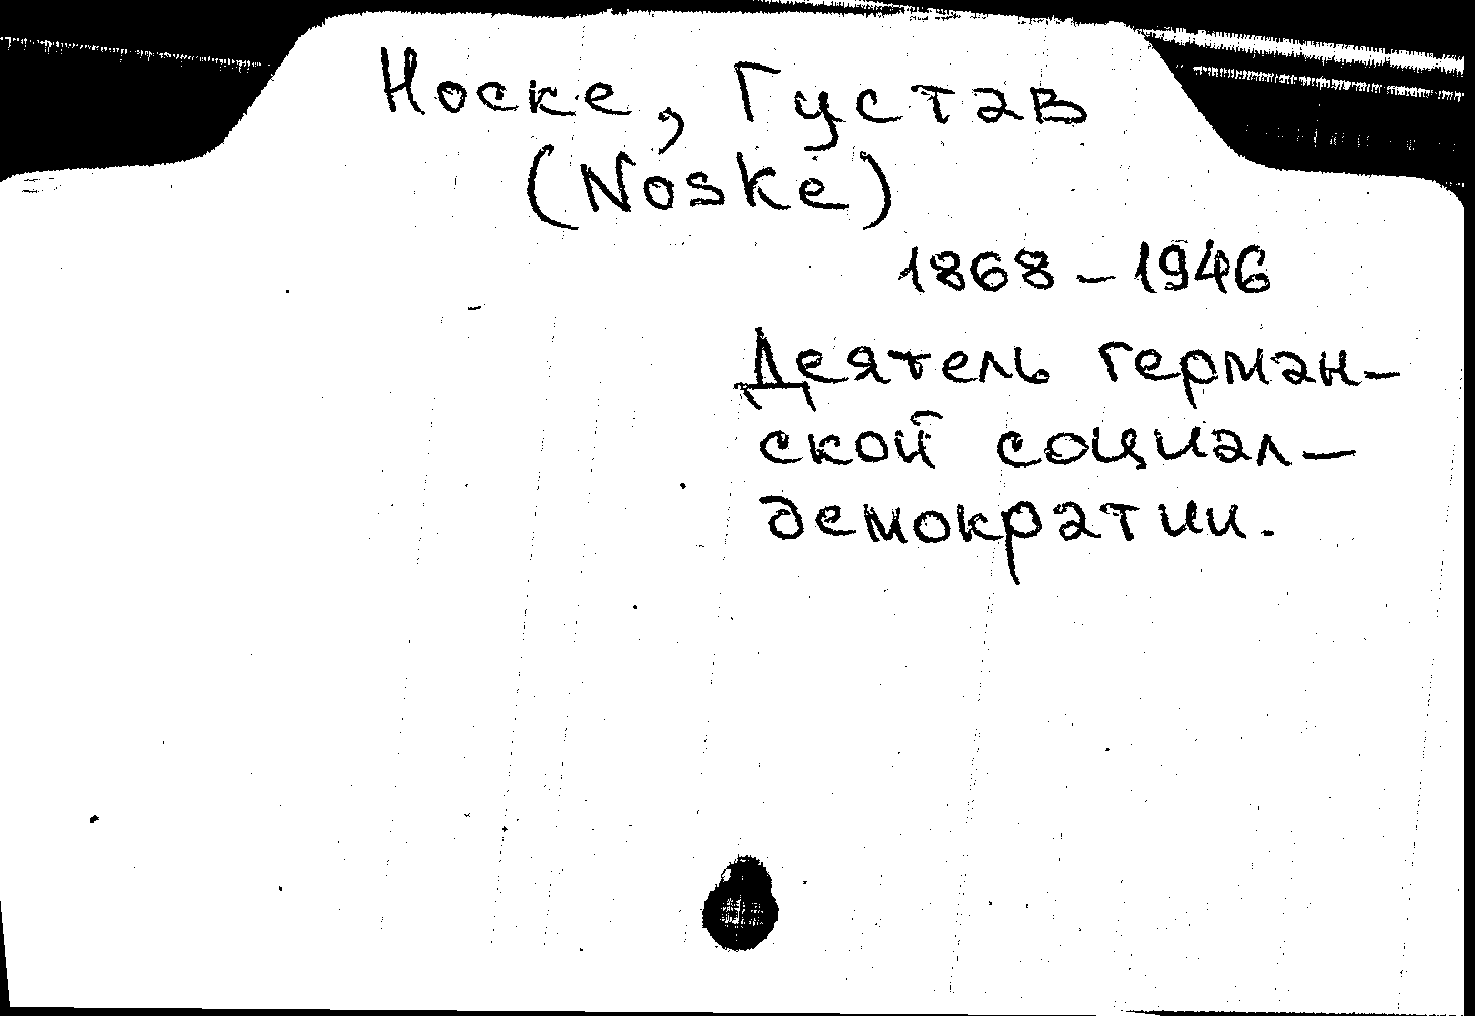 Носке, Густав
(Noske)
1868-1946
Деятель герман-
ской социал-
демократии.